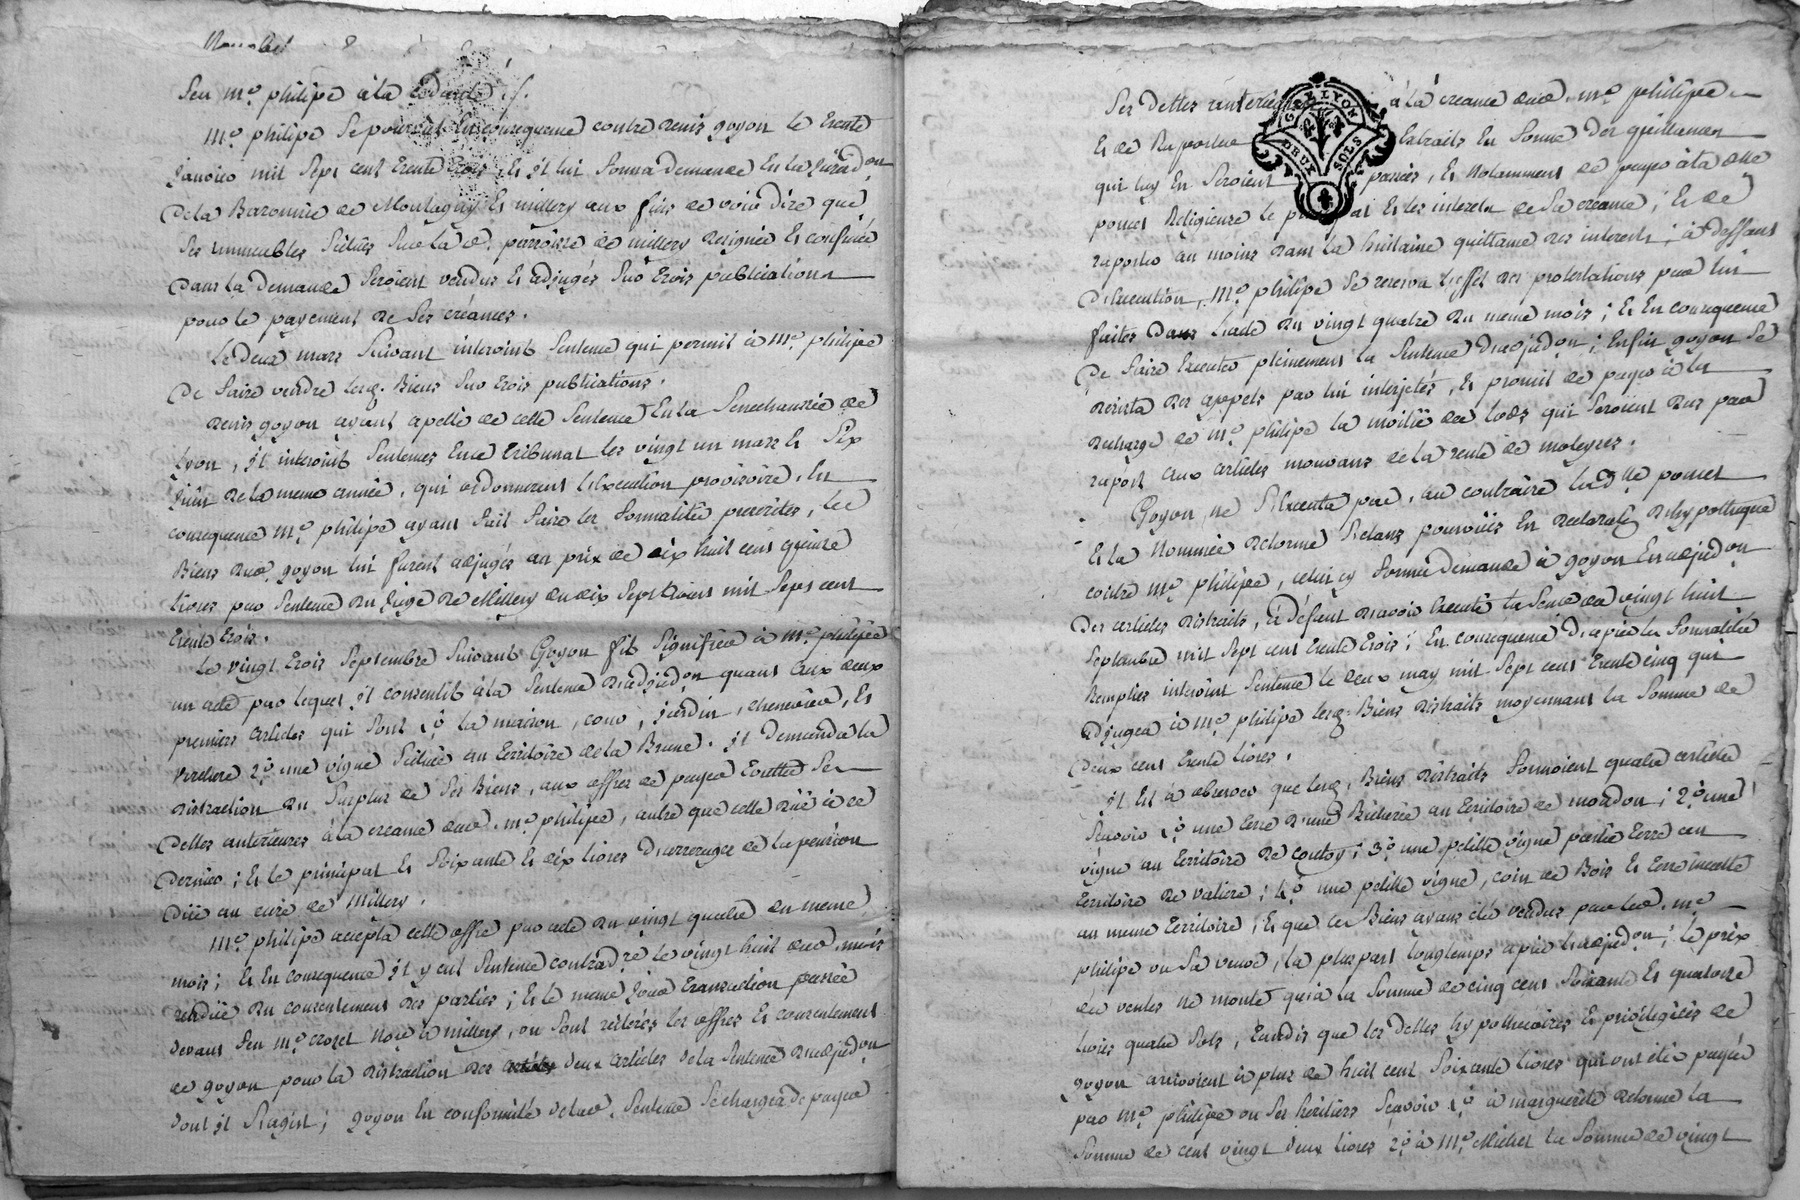 feu me philipe à la
Me philipe se pourvut en consequence contre denis goyon le trente
janvier mil sept cent trente trois, et il lui forma demande en la jurisdon
de la Baronnie de Montagny et millery aux fins de voir dire que
ses immeubles scitués sur la d. parroisse de millery designés et confinés
dans la demande seroient vendus et adjugés sur trois publications
pour le payement de ses créances.
Le deux mars suivant intervint sentence qui permit à me philipe
de faire vendre lesq. Biens sur trois publications.
denis goyon ayant apellé de cette sentence en la senechaussée de
Lyon, il intervint sentences en ce tribunal les vingt un mars et six
juin de la meme année, qui ordonnerent l'execution provisoire, en
consequence me philipe ayant fait faire les formalités prescrites, les
Biens dud. goyon lui furent adjugés au prix de dix huit cent quinze
livres par sentence du juge de Millery du dix sept mil sept cent
trente trois.
Le vingt trois septembre suivant Goyon fit signifier à me philipe
un acte par lequel il consentit à la sentence d'adjudon quant aux deux
premiers articles qui sont 1o la maison, cour, jardin, cheneviere, et
verchere 2o une vigne scituée au territoire de la Brune. il demanda la
distraction du surplus de ses Biens, aux offres de payer toutes ses
dettes anterieures à la creance dud. me philipe, autre que celle düe à ce
dernier; et le principal et soixante et dix livres d'arrerages de la pension
düe au curé de Millery.
Me philipe accepta cette offre par acte du vingt quatre du meme
mois; et en consequence il y eut sentence contradre le vingt huit dud. mois
rendüe du consentement des parties; et le meme jour transaction passée
devant feu me crozet nore à millery, ou sont reiterés les offres et consentement
de goyon pour la distraction des deux articles de la sentence d'adjudon
dont il s'agist; goyon en conformité de lad. sentence se chargea de payer
ses dettes anterieures à la creance dud. me philipe
et de raporter extraits en forme des quittances
qui luy en seroient passées, et notamment de payer à la dlle
poncet religieuse le principal et les interets de sa creance; et de
raporter au moins dans la huitaine quittance des interets; à deffaut
d'execution, me philipe se reserva l'effet des protestations par lui
faites dans l'acte du vingt quatre du meme mois; et en consequence
de faire executer pleinement la sentence d'adjudon; Enfin goyon se
desista des appels par lui interjetés, et promit de payer à la
decharge de me philipe la moitié des lods qui seroient dus par
raport aux articles mouvans de la rente de moleyses.
Goyon ne s'executa pas, au contraire lad. dlle poncet
et la nommée delorme s'etant pourvües en declaraon d'hypotheque
contre me philipe, celui cy forma demande à goyon en adjudon
des articles distraits, à défaut d'avoir executé la sence du vingt huit
septembre mil sept cent trente trois; en consequence d'après les formalités
remplies intervint sentence le deux may mil sept cent trente cinq qui
adjugea à me philipe lesq. Biens distraits moyennant la somme de
deux cent trente livres.
il est à observer que lesq. Biens distraits formoient quatre articles
scavoir 1o une terre d'une Bicherée au territoire de mondon; 2o une
vigne au territoire de coutoy; 3o une petitte vigne partie terre au
territoire de valiere; 4o une petitte vigne, coin de Bois et terre inculte
au meme territoire; et que les Biens ayant été vendus par led. me
philipe ou sa veuve, la plus part longtemps après l'adjudon; le prix
des ventes ne monte qu'à la somme de cinq cent soixante et quatorze
livres quatre sols, tandis que les dettes hypothecaires et privilegiées de
goyon arrivoient à plus de huit cent soixante livres qui ont été payées
par me philipe ou ses héritiers scavoir 1o à marguerite delorme la
somme de cent vingt deux livres 2o à me Michel la somme de vingt
GEN. LYON
DEUX SOLS